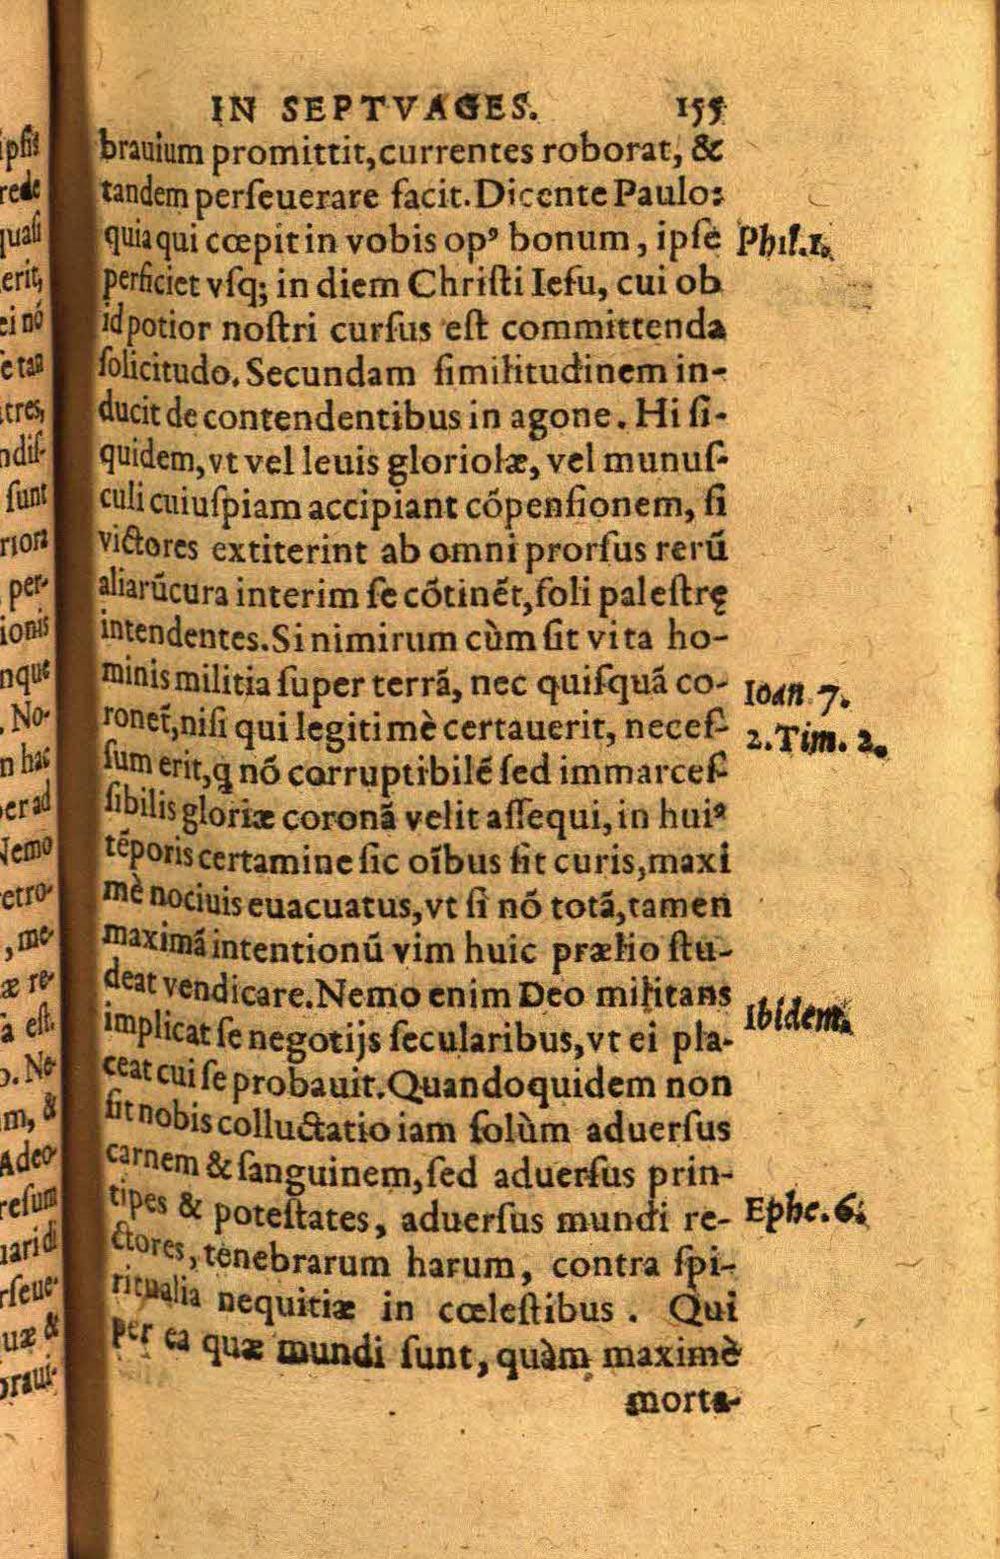 IN SEPTVAGES. 155
brauium promittit, currentes roborat, &
tandem perſeuerare facit. Dicente Paulo:
quia qui cœpit in vobis opꝰ bonum, ipſe
Phil. 1.
perficiet vſq; in diem Chriſti Ieſu, cui ob
id potior noſtri curſus eſt committenda
ſolicitudo. Secundam ſimilitudinem in-
ducit de contendentibus in agone. Hi ſi-
quidem, vt vel leuis gloriolæ, vel munuſ-
culi cuiuſpiam accipiant cõpenſionem, ſi
victores extiterint ab omni prorſus rerũ
aliarũ cura interim ſe cõtinẽt, ſoli paleſtrę
intendentes. Si nimirum cùm ſit vita ho-
minis militia ſuper terrã, nec quiſquã co-
Ioan. 7.
ronet̃, niſi qui legitimè certauerit, neceſ-
2. Tim. 2.
ſum erit, q̃ nõ corruptibilẽ ſed immarceſ-
ſibilis gloriæ coronã velit aſſequi, in huiꝰ
tẽporis certamine ſic oĩbus ſit curis, maxi
mè nociuis euacuatus, vt ſi nõ totã, tamen
maximã intentionũ vim huic prælio ſtu-
deat vendicare. Nemo enim Deo militans
Ibidem.
implicat ſe negotijs ſecularibus, vt ei pla-
ceat cui ſe probauit. Quandoquidem non
ſit nobis colluctatio iam ſolùm aduerſus
carnem & ſanguinem, ſed aduerſus prin-
tipes & poteſtates, aduerſus mundi re-
Ephe. 6.
ctores, tenebrarum harum, contra ſpi-
ritualia nequitiæ in cœleſtibus. Qui
per ea quæ mundi ſunt, quàm maximè
morta-